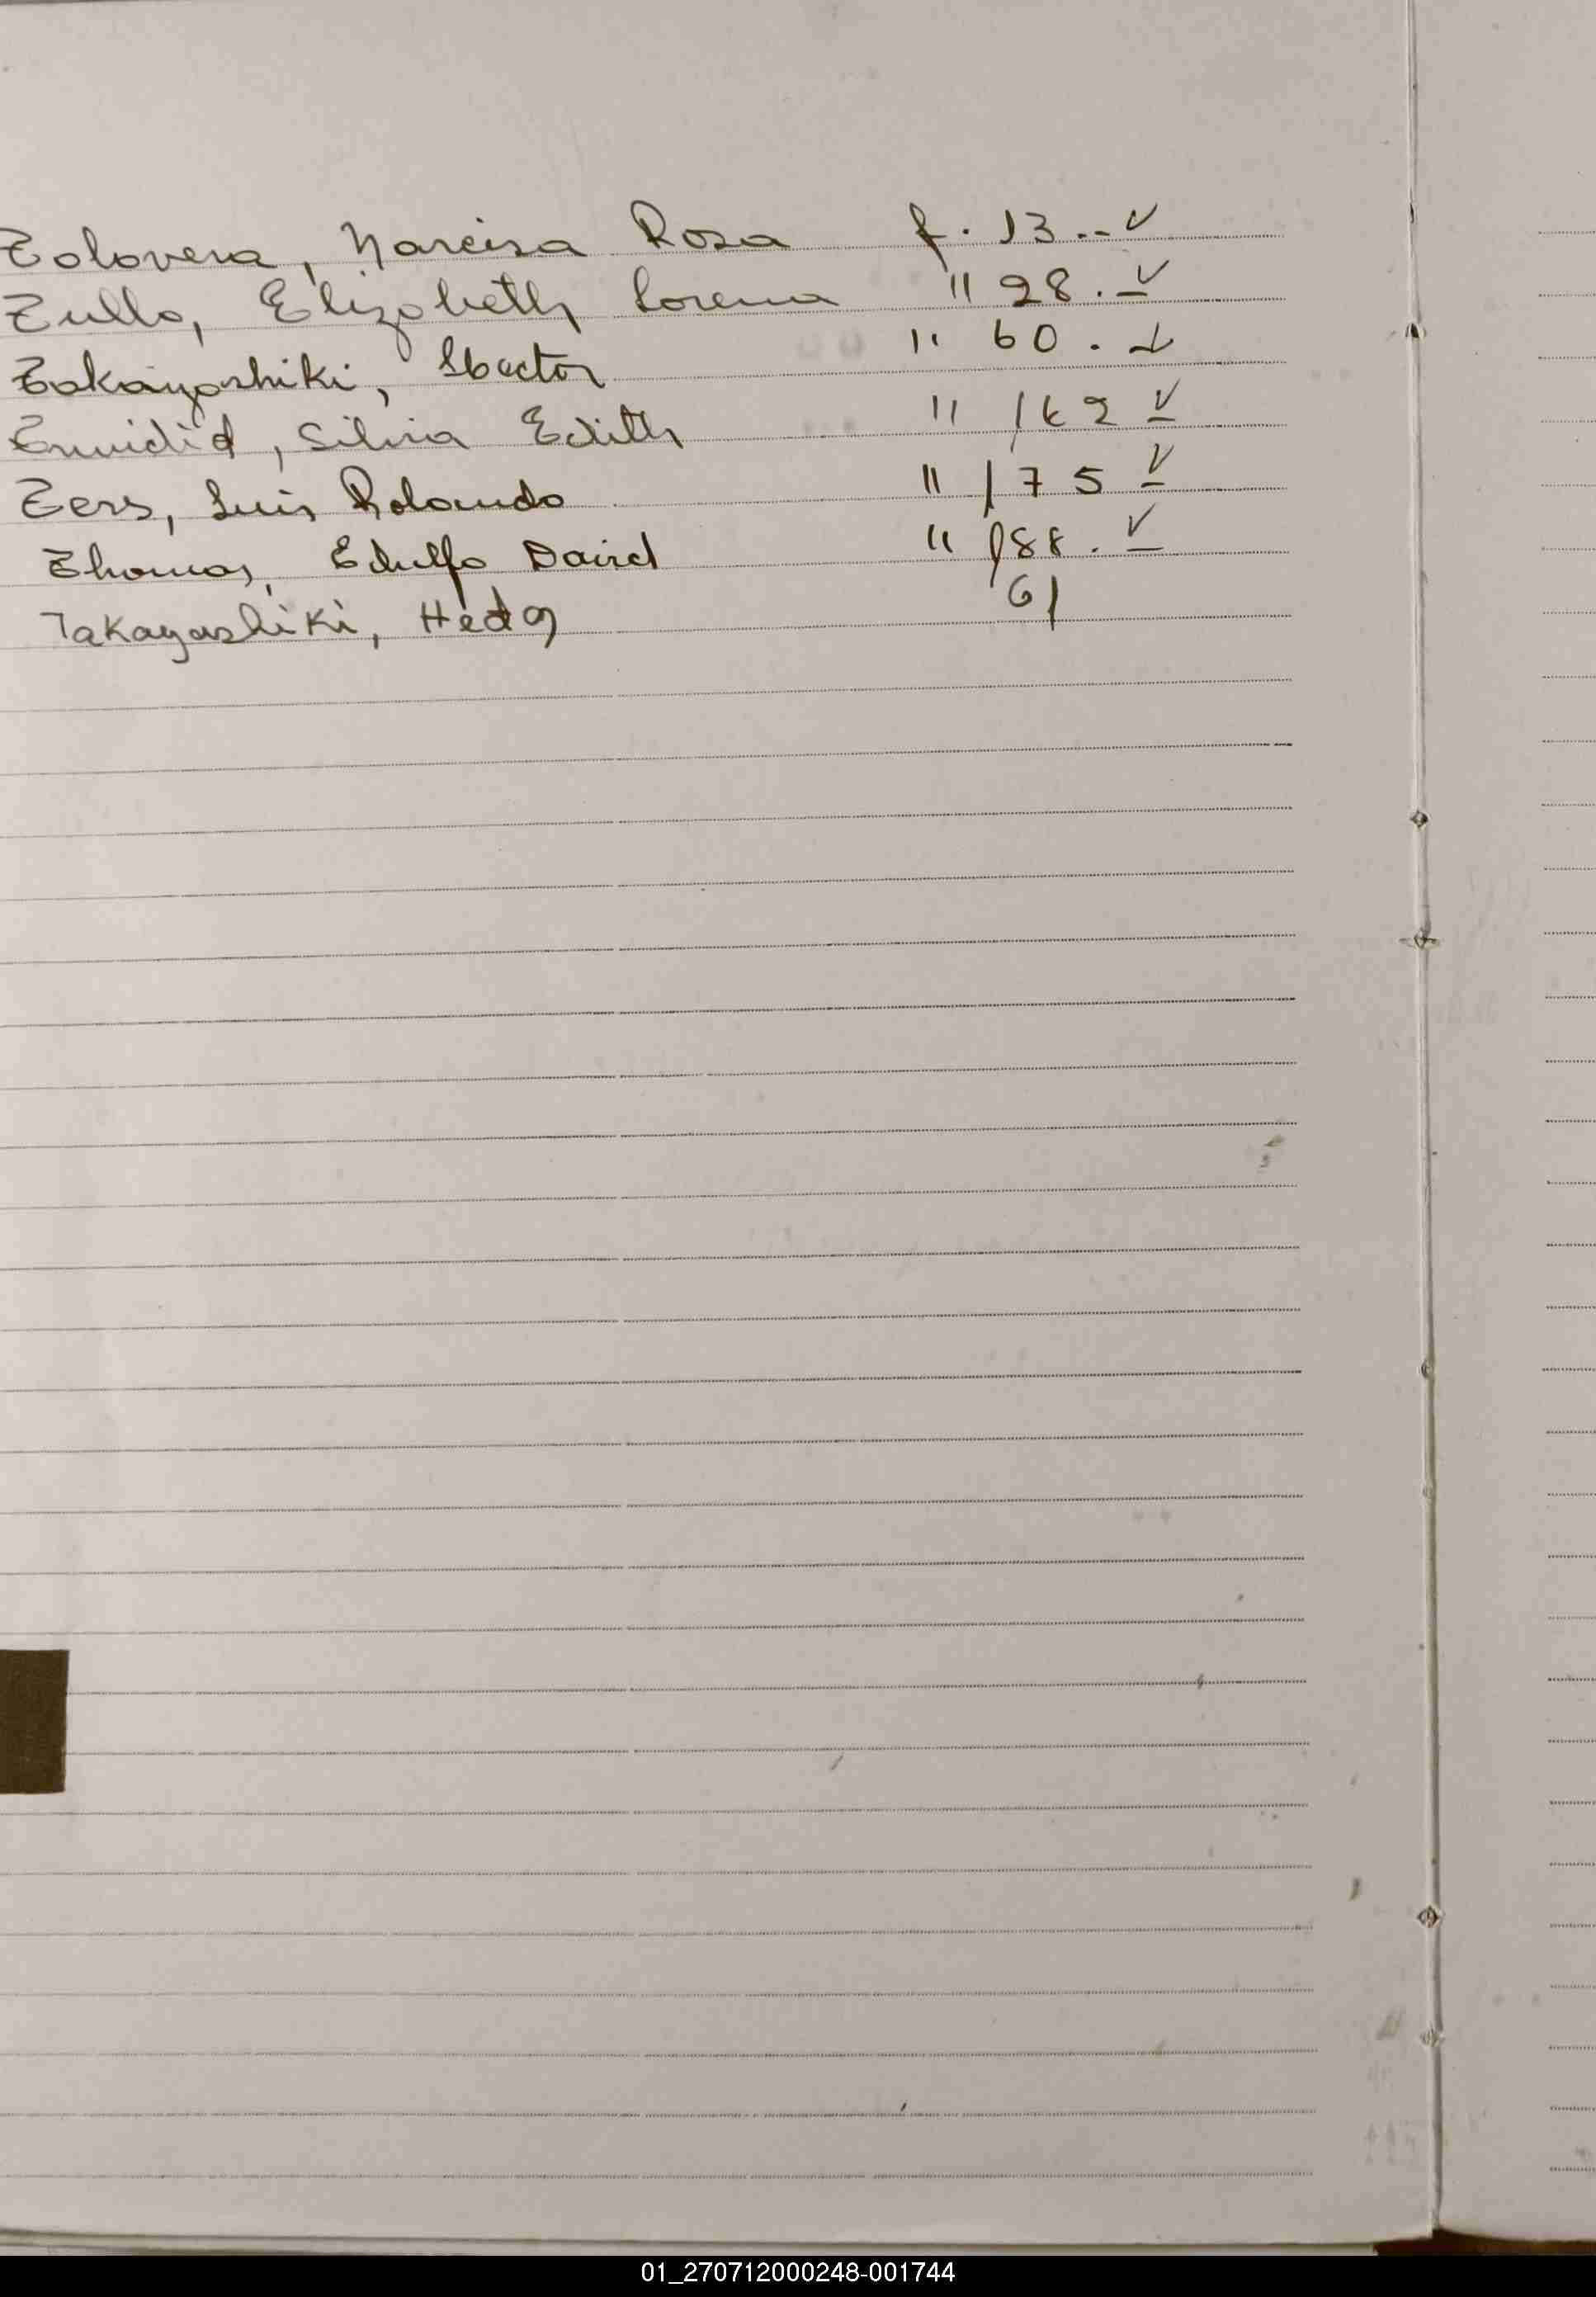 Talavera, Narcisa Rosa f. 13 .. V
Tullo, Elizabeth Lorena " 28 . V
Takayashiki, Hector " 60 . V
Silvia Edith " 162 V
Luis Rolando " 175 V
Thomas, Edulfo David " 188 . V
Takayashiki, Hector 61
01_270712000248-001744